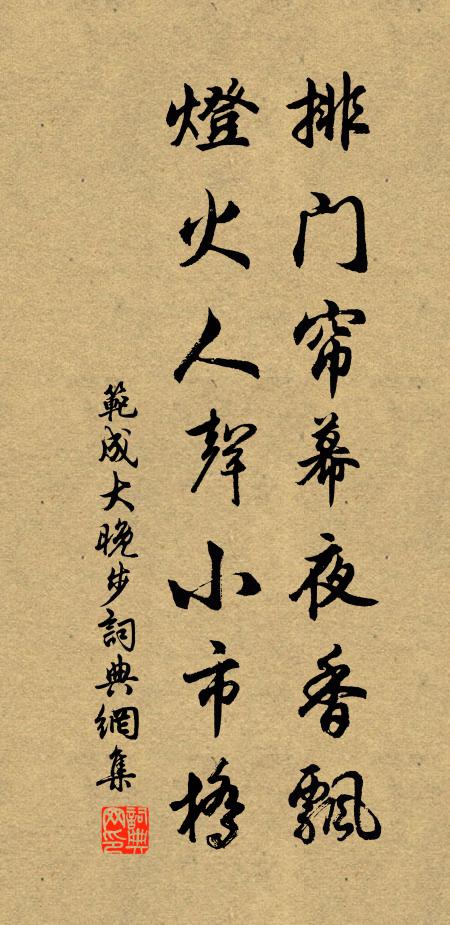 排门帘幕夜香飄
燈火人聲小市橋
範成大晚步詞典網集
詞典网印